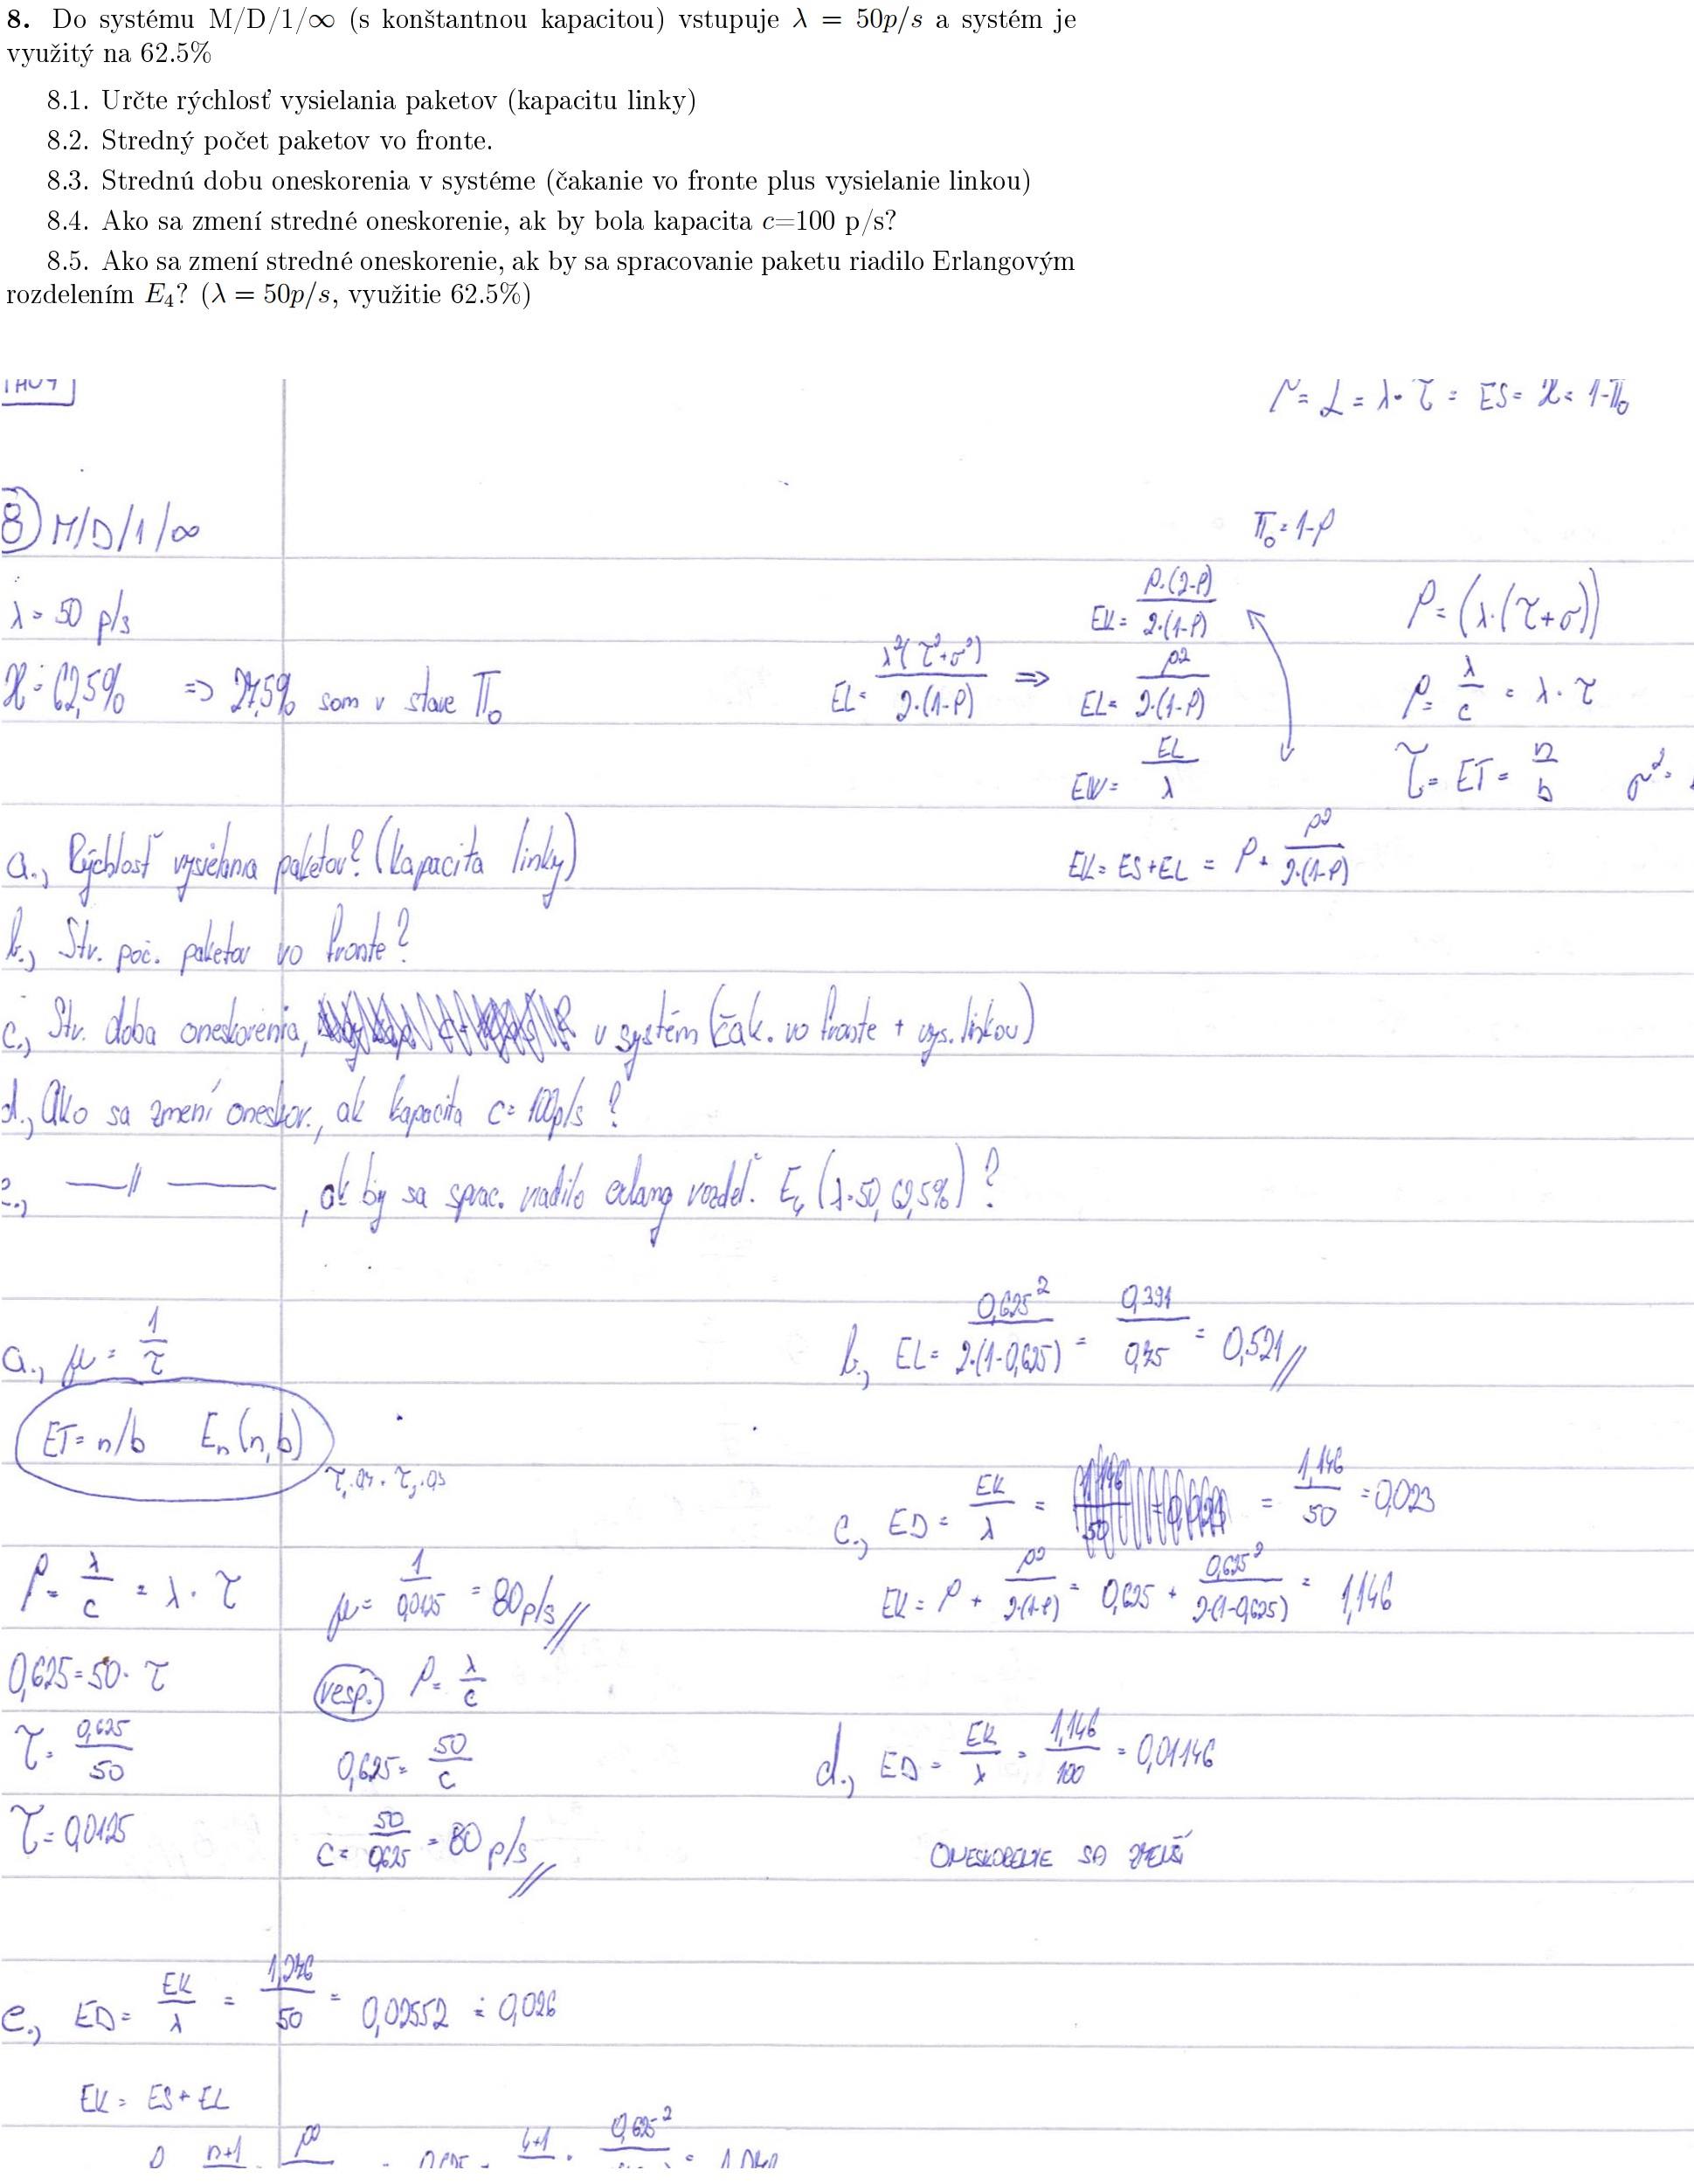 8. Do systému M/D/1/∞ (s konštantnou kapacitou) vstupuje λ = 50p/s a systém je
využitý na 62.5%
8.1. Určte rýchlosť vysielania paketov (kapacitu linky)
8.2. Stredný počet paketov vo fronte.
8.3. Strednú dobu oneskorenia v systéme (čakanie vo fronte plus vysielanie linkou)
8.4. Ako sa zmení stredné oneskorenie, ak by bola kapacita c=100 p/s?
8.5. Ako sa zmení stredné oneskorenie, ak by sa spracovanie paketu riadilo Erlangovým
rozdelením E₄? (λ = 50p/s, využitie 62.5%)
= λ · τ = ES = ϰ = 1-π₀
8) M/D/1/∞
π₀ = 1-ρ
λ = 50 p/s
EK = ρ·(2-ρ) / 2·(1-ρ)
ρ = (λ·(τ+σ))
ϰ = 62,5% => 27,5% som v stave π₀
EL = λ²(τ²+σ²) / 2·(1-ρ) => EL = ρ² / 2·(1-ρ)
ρ = λ/c = λ · τ
EW = EL/λ
τ = ET = n/b σ² =
a., Rýchlosť vysielania paketov? (kapacita linky)
EK = ES+EL = ρ + ρ² / 2·(1-ρ)
b., Str. poč. paketov vo fronte?
c., Str. doba oneskorenia, v systém (čak. vo fronte + vys. linkou)
d., Ako sa zmení oneskor., ak kapacita c = 100p/s ?
e., —//— , ak by sa sprac. riadilo erlang rozdel. E₄ (λ=50, 62,5%) ?
a., μ = 1/τ
b., EL = 0,625² / 2·(1-0,625) = 0,391 / 0,75 = 0,521 //
ET = n/b Eₙ(n,b)
c., ED = EK/λ = = 1,146/50 = 0,023
ρ = λ/c = λ · τ
μ = 1/0,0125 = 80p/s //
EK = ρ + ρ² / 2·(1-ρ) = 0,625 + 0,625² / 2·(1-0,625) = 1,146
0,625 = 50 · τ
resp. ρ = λ/c
τ = 0,625/50
0,625 = 50/c
d., ED = EK/λ = 1,146/100 = 0,01146
τ = 0,0125
c = 50/0,625 = 80 p/s //
ONESKORENIE SA ZMENŠÍ
e., ED = EK/λ = 1,276/50 = 0,02552 ≐ 0,026
EK = ES + EL